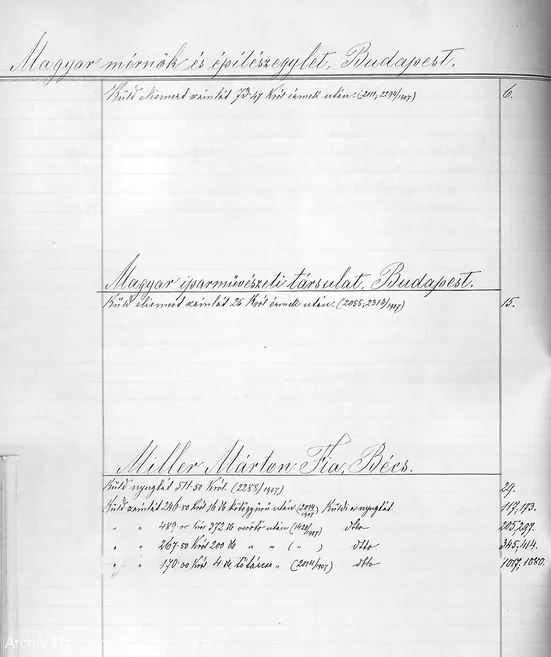 Magyar mérnök és építészegylet, Budapest.
Küld elismert számlát 73.47 Król érmek után. (2112, 2299/907) 6.
Magyar iparművészeti társulat, Budapest.
Küld elismert számlát 26 Król érmek után. (2088, 2313/907) 15.
Miller Márton Fia, Bécs.
Küld nyugtát 511.50 Król. (2288/907) 29.
Küld számlát 246.00 Król 16 db után (2014/907) Küld a nyugtát 117, 173.
" " 489.00 Król 372 db után (1420/907) dtto 205, 297.
" " 267.50 Król 200 db " " ( " ) dtto 345, 414.
" " 170.00 Król 4 db " (2014/907) dtto 1017, 1080.
Archív